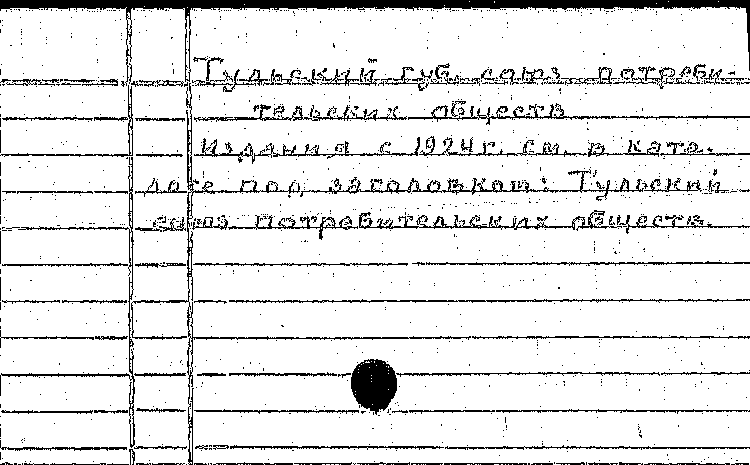 Тульский губ. союз потреби-
тельских обществ
Издания с 1924 г. см. в ката-
логе под заголовком: Тульский
союз потребительских обществ.